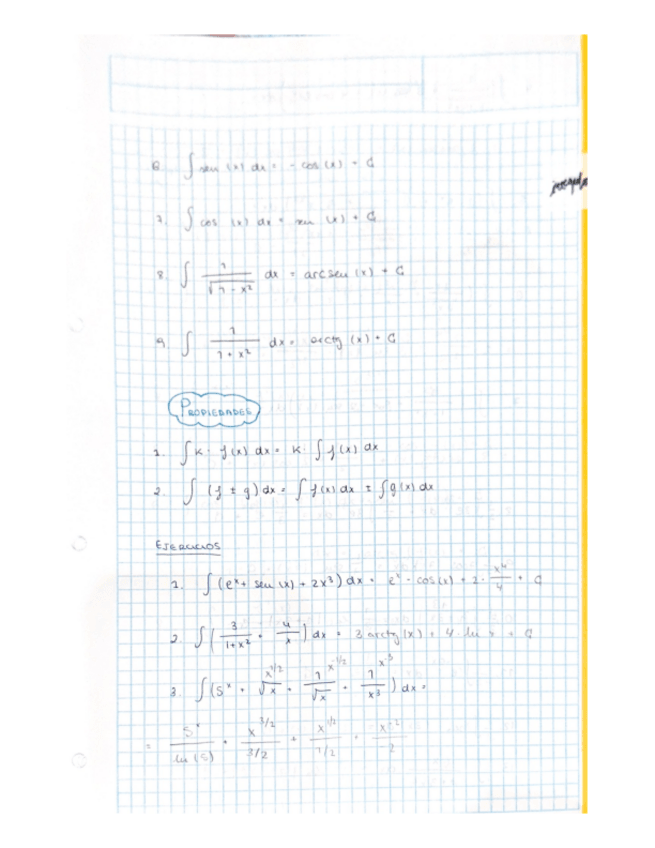 6. ∫ sen (x) dx = - cos (x) + C
7. ∫ cos (x) dx = sen (x) + C
8. ∫ 1/√(1 - x²) dx = arcsen (x) + C
9. ∫ 1/(1 + x²) dx = arctg (x) + C
PROPIEDADES
1. ∫ K · f(x) dx = K · ∫ f(x) dx
2. ∫ (f ± g) dx = ∫ f(x) dx ± ∫ g(x) dx
EJERCICIOS
1. ∫ (eˣ + sen (x) + 2x³) dx = eˣ - cos(x) + 2 · x⁴/4 + C
2. ∫ (3/(1+x²) + 4/x) dx = 3 arctg (x) + 4 · ln x + C
x^1/2 x^-1/2 x^-3
3. ∫ (5ˣ + √x + 1/√x + 1/x³) dx =
= 5ˣ/ln (5) + x^3/2/3/2 + x^1/2/1/2 + x^-2/2